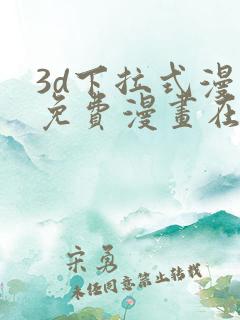 3d下拉式漫
免費漫畫在
宋勇
未经同意禁止转载